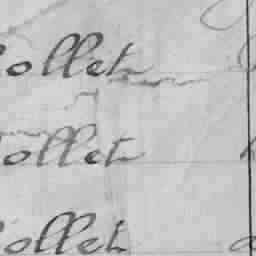 ollet
ollet
ollet